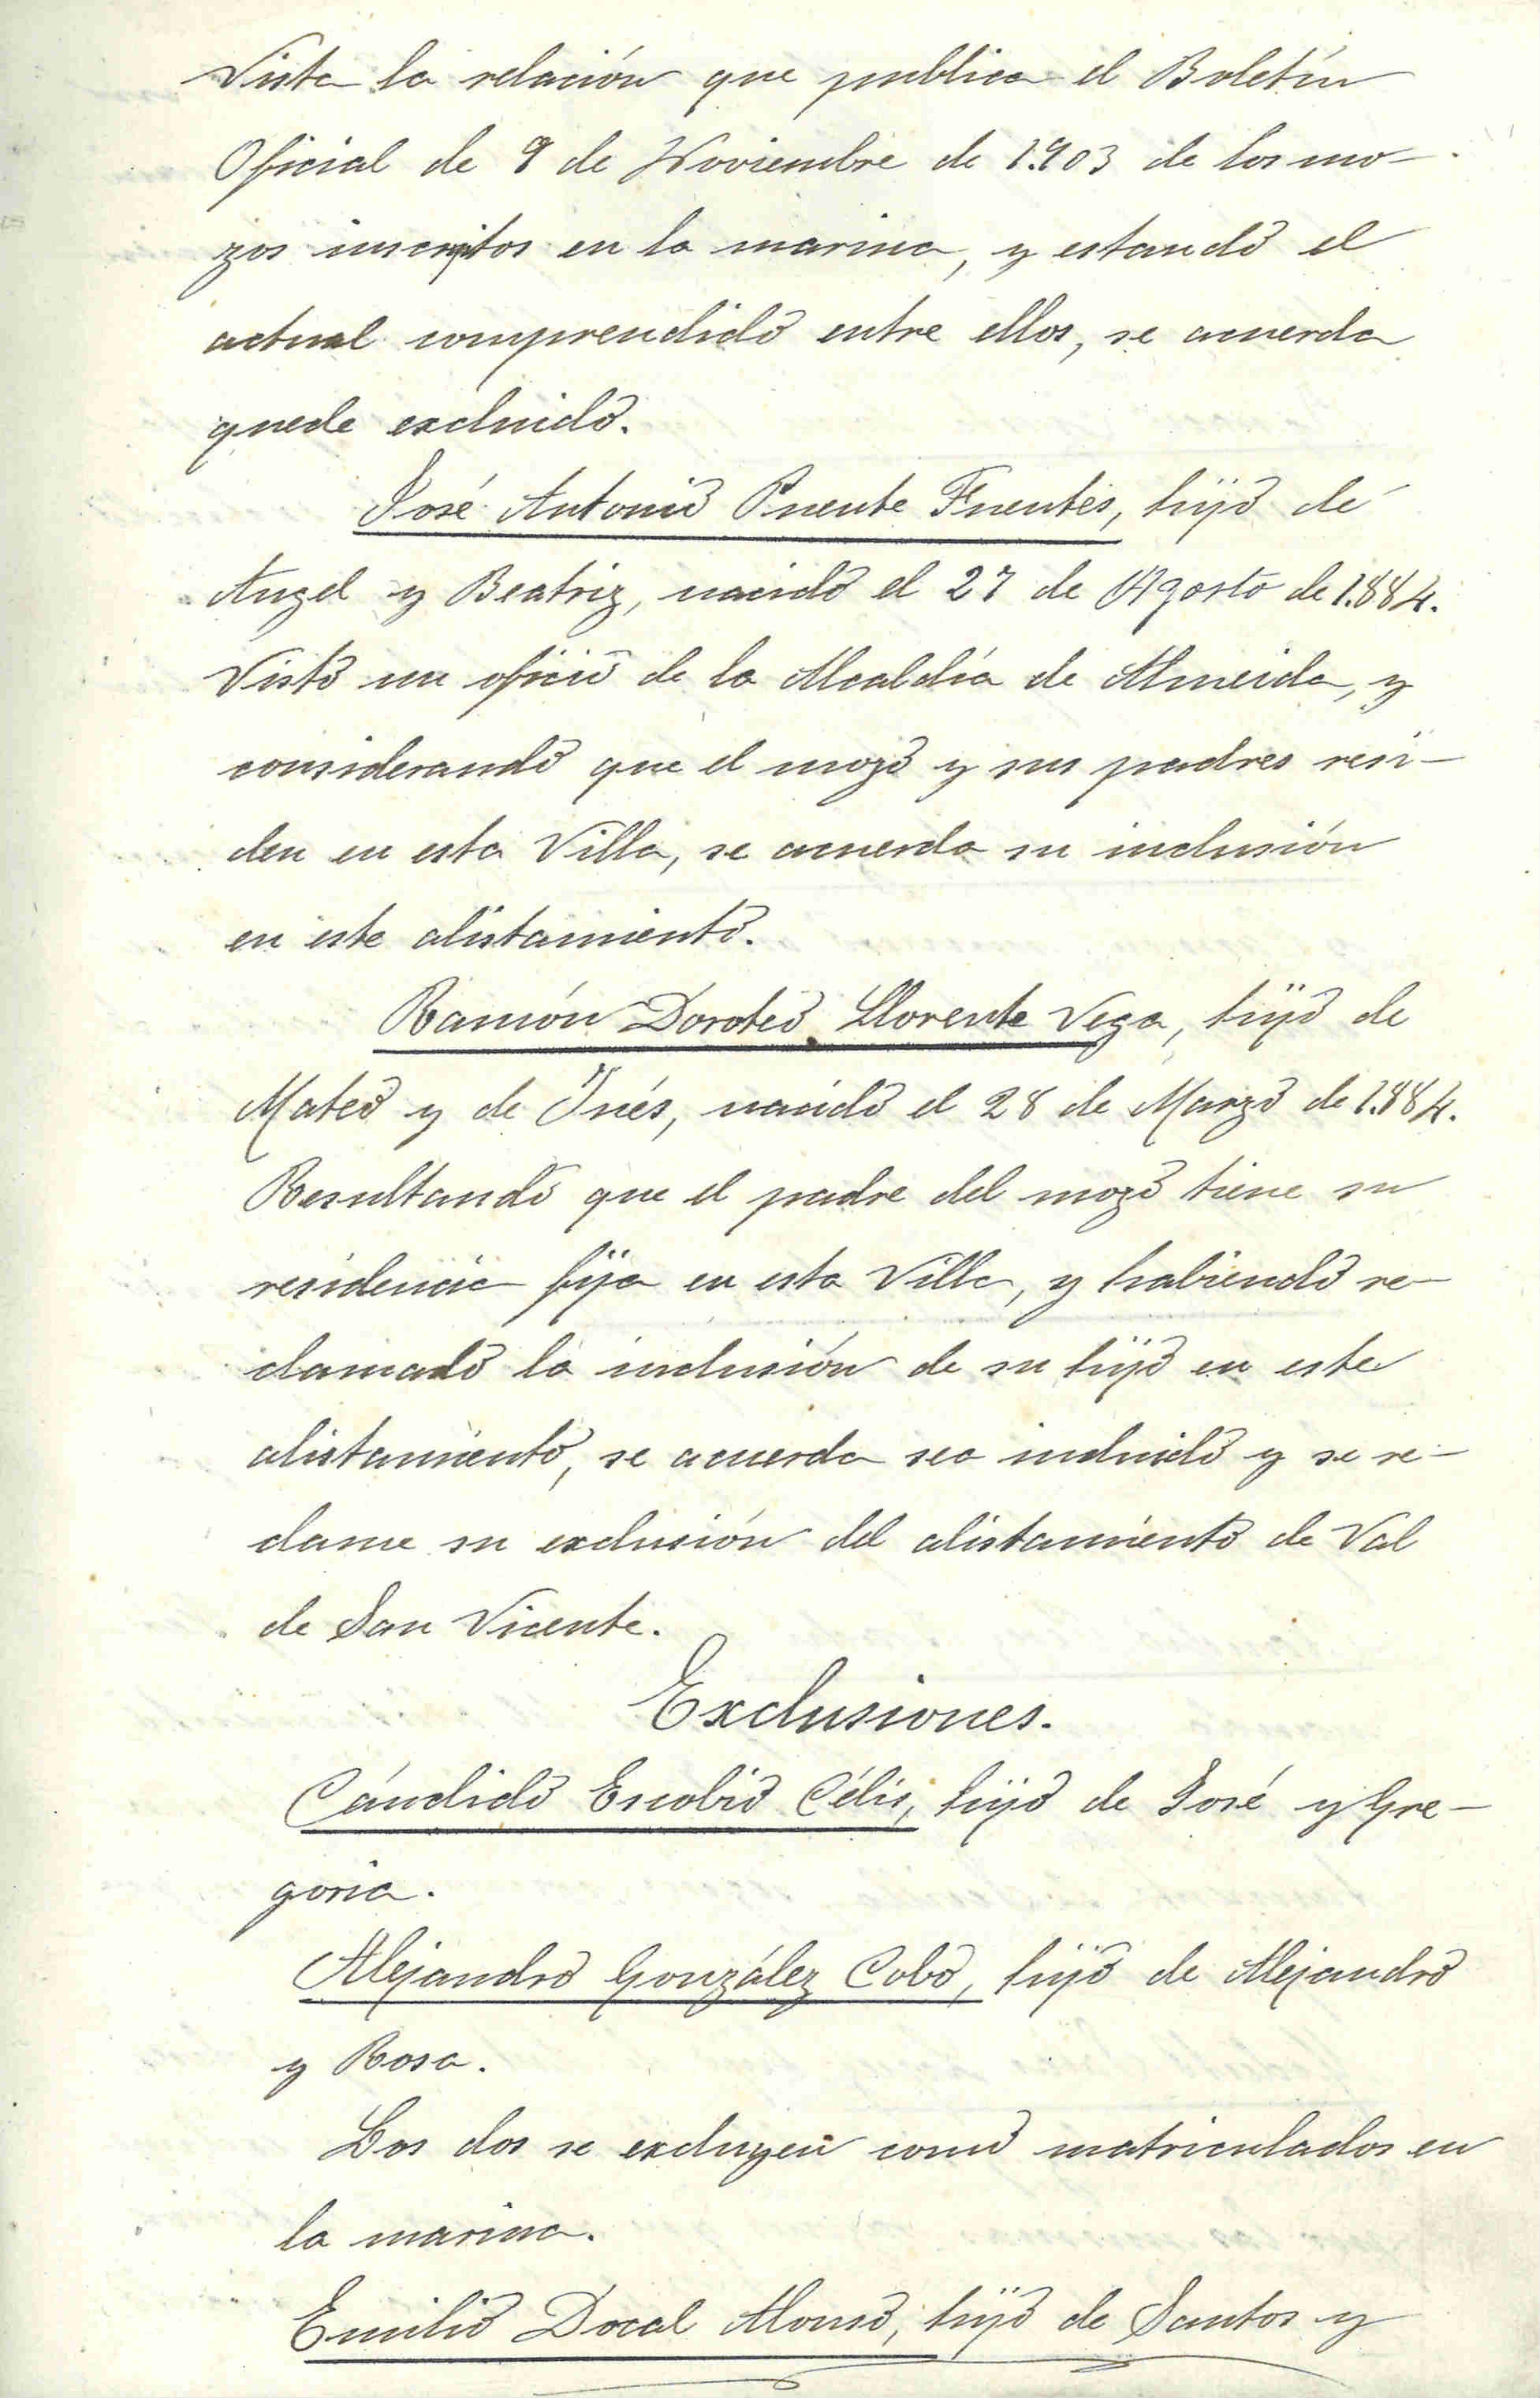 Vista la relación que publica el Boletín
Oficial de 9 de Noviembre de 1.903 de los mo-
zos inscriptos en la marina, y estando el
actual comprendido entre ellos, se acuerda
quede excluido.
José Antonio Puente Fuentes, hijo de
Angel y Beatriz, nacido el 27 de Agosto de 1.884.
Visto un oficio de la Alcaldía de Almeida, y
considerando que el mozo y sus padres resi-
den en esta Villa, se acuerda su inclusión
en este alistamiento.
Ramón Doroteo Llorente Vega, hijo de
Mateo y de Inés, nacido el 28 de Marzo de 1.884.
Resultando que el padre del mozo tiene su
residencia fija en esta Villa, y habiendo re-
clamado la inclusión de su hijo en este
alistamiento, se acuerda sea incluido y se re-
clame su exclusión del alistamiento de Val
de San Vicente.
Exclusiones.
Cándido Escobio Célis, hijo de José y Gre-
goria.
Alejandro González Cobo, hijo de Alejandro
y Rosa.
Los dos se excluyen como matriculados en
la marina.
Emilio Docal Alonso, hijo de Santos y